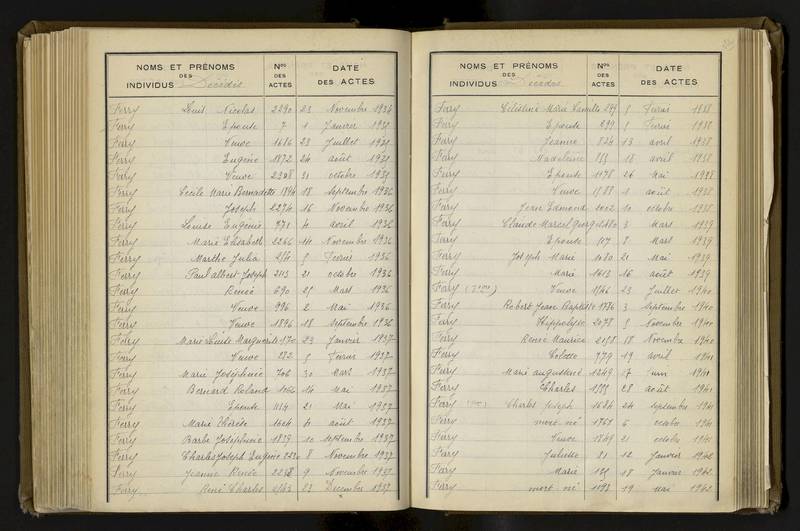 NOMS ET PRÉNOMS
DES
INDIVIDUS Décédés
Nos
DES
ACTES
DATE
DES ACTES
Ferry Louis Nicolas 2290 23 Novembre 1934
Ferry Epouse 7 1 Janvier 1935
Ferry Veuve 1616 23 Juillet 1935
Ferry Eugénie 1872 24 août 1935
Ferry Veuve 2308 31 octobre 1935
Ferry Cécile Marie Bernadette 1844 18 septembre 1936
Ferry Joseph 2274 16 Novembre 1936
Ferry Louise Eugénie 771 4 avril 1936
Ferry Marie Elisabeth 2266 14 Novembre 1936
Ferry Marthe Julia 5 Février 1936
Ferry Paul albert Joseph 2113 21 octobre 1936
Ferry Renée 690 25 Mars 1936
Ferry Veuve 996 2 Mai 1936
Ferry Veuve 1896 18 septembre 1936
Ferry Marie Louise Marguerite 170 23 Janvier 1937
Ferry Veuve 272 5 Février 1937
Ferry Marie Joséphine 706 30 Mars 1937
Ferry Bernard Roland 14 Mai 1937
Ferry Epouse 1114 21 Mai 1937
Ferry Marie Thérèse 1604 6 août 1937
Ferry Barbe Joséphine 1839 10 septembre 1937
Ferry Charles Joseph Eugène 8 Novembre 1937
Ferry Jeanne Renée 9 Novembre 1937
Ferry René Charles 23 Décembre 1937
NOMS ET PRÉNOMS
DES
INDIVIDUS Décédés
Nos
DES
ACTES
DATE
DES ACTES
Ferry Célestine Marie 5 Février 1938
Ferry Epouse 299 5 Février 1938
Ferry Jeanne 824 13 avril 1938
Ferry Madeleine 18 avril 1938
Ferry Epouse 1178 26 Mai 1938
Ferry Veuve 1 août 1938
Ferry Jean Edmond 2002 10 octobre 1938
Ferry Claude Marcel 3 Mars 1939
Ferry Epouse 8 Mars 1939
Ferry Joseph Marie 1080 21 Mai 1939
Ferry Marie 1613 16 août 1939
Ferry Veuve 23 Juillet 1940
Ferry Robert Jean Baptiste 1776 3 septembre 1940
Ferry Hippolyte 2078 5 Novembre 1940
Ferry Maurice 18 Novembre 1940
Ferry 779 19 avril 1941
Ferry Marie augustine 1249 17 Juin 1941
Ferry Charles 28 août 1941
Ferry Charles Joseph 1684 24 septembre 1941
Ferry mort né 1761 6 octobre 1941
Ferry Veuve 1849 21 octobre 1941
Ferry Juliette 81 12 Janvier 1942
Ferry Marie 18 Janvier 1942
Ferry mort né 1193 19 Mai 1942